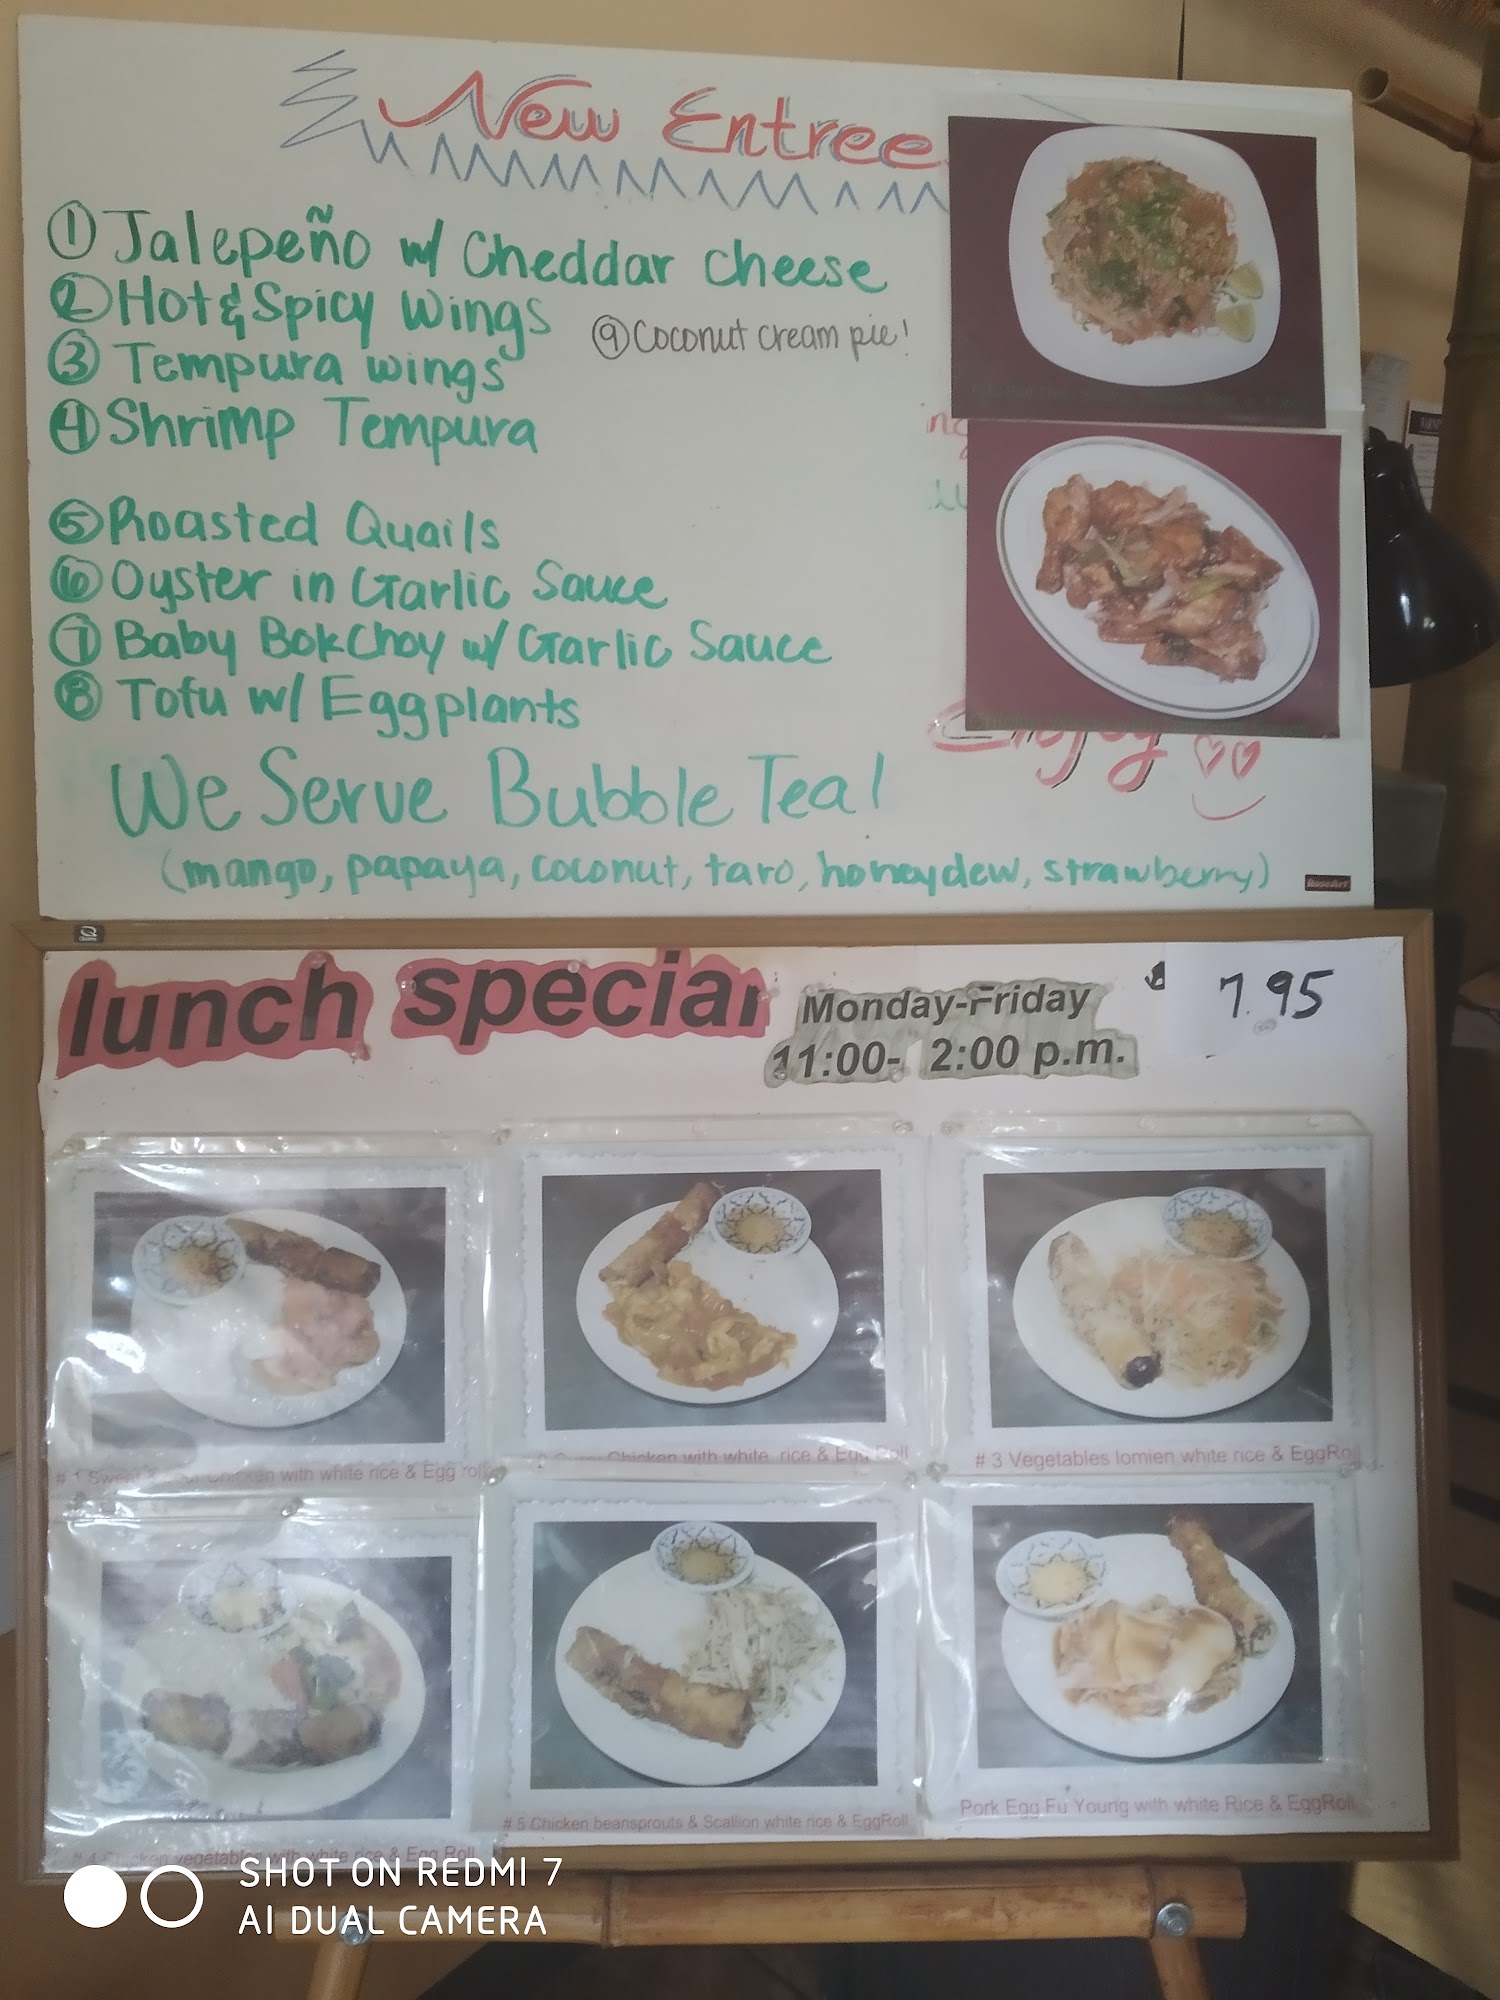 New Entree
① Jalepeño w/ Cheddar cheese
② Hot & Spicy Wings
③ Tempura wings
④ Shrimp Tempura
⑨ Coconut cream pie!
⑤ Roasted Quails
⑥ Oyster in Garlic Sauce
⑦ Baby BokChoy w/ Garlic Sauce
⑧ Tofu w/ Eggplants
Enjoy
We Serve Bubble Tea!
(mango, papaya, coconut, taro, honeydew, strawberry)
RoseArt
lunch special
Monday-Friday
11:00- 2:00 p.m.
$ 7.95
# 1 Sweet & Chicken with white rice & Egg roll
Chicken with white rice & Egg Roll
# 3 Vegetables lomien white rice & EggRoll
# 4 Chicken vegetables with white rice & Egg Roll
# 5 Chicken beansprouts & Scallion white rice & EggRoll
Pork Egg Fu Young with white Rice & EggRoll
SHOT ON REDMI 7
AI DUAL CAMERA